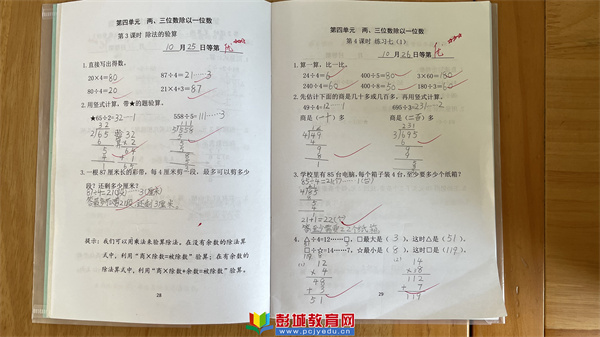 第四单元 两、三位数除以一位数
第 3 课时 除法的验算
10 月 25 日 等第 优
1. 直接写出得数。
20×4=80 87÷4=21……3
80÷4=20 21×4+3=87
2. 用竖式计算。带★的题验算。
★65÷2=32……1 558÷5=111……3
3. 一根 87 厘米长的彩带，每 4 厘米剪一段，最多可以剪多少
段？还剩多少厘米？
87÷4=21(段)……3(厘米)
提示：我们可以用乘法来验算除法。在没有余数的除法算
式中，利用“商×除数=被除数”验算；在有余数的
除法算式中，利用“商×除数+余数=被除数”验算。
28
第四单元 两、三位数除以一位数
第 4 课时 练习七（1）
10 月 26 日 等第 优
1. 算一算，比一比。
24÷4=6 400÷5=80 3×60=180
240÷4=60 400÷8=50 180÷3=60
2. 先估计下面的商是几十多或几百多，再用竖式计算。
49÷4=12……1 695÷3=231……2
商是（一十）多 商是（二百）多
3. 学校里有 85 台电脑，每个箱子装 4 台，至少要多少个纸箱？
85÷4=21(个)……1(台)
21+1=22(个)
4. △÷4=12……□，□最大是（3），这时△是（51）。
□÷☆=14……7，☆最小是（8），这时□是（119）。
12
× 4
48
+ 3
51
14
×8
112
+ 7
119
29
彭城教育网
www.pcjyedu.cn